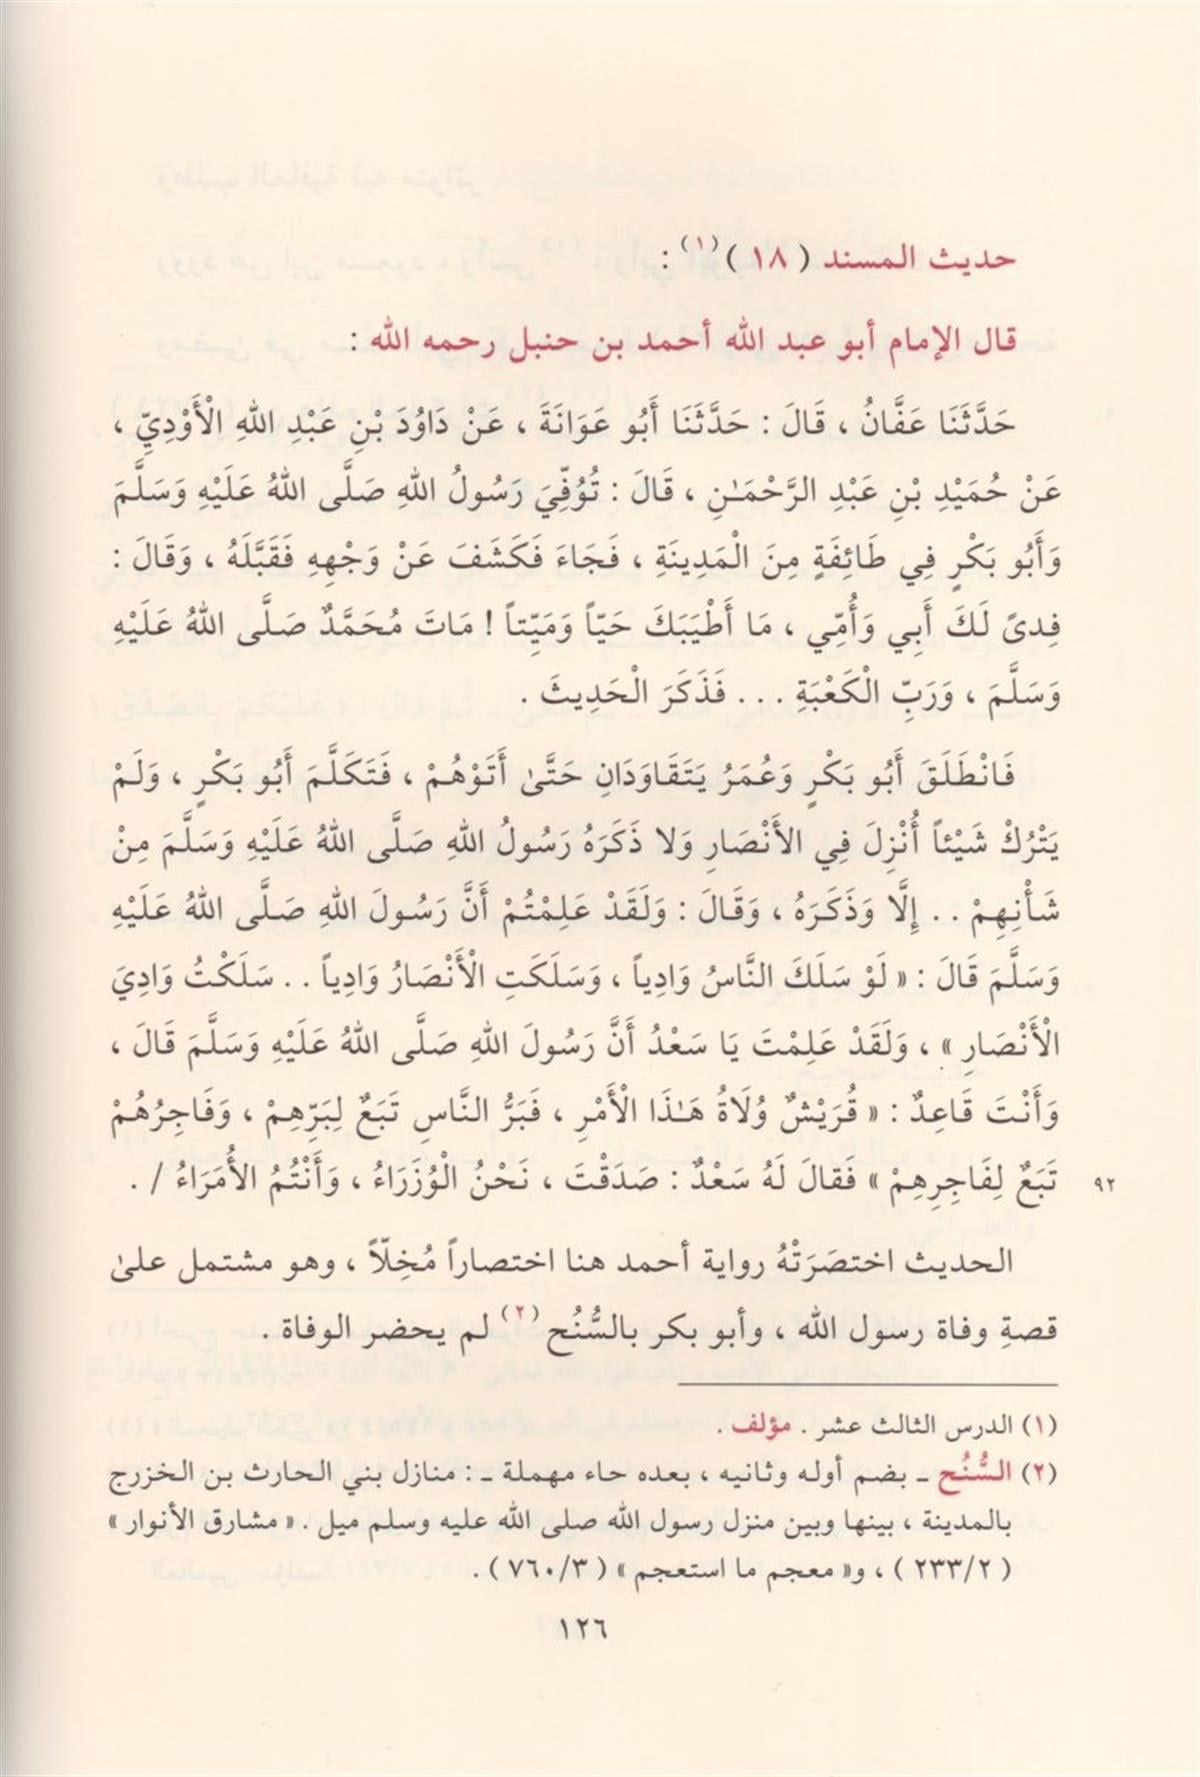 حديث المسند ( ١٨ )(١) :
قال الإمام أبو عبد الله أحمد بن حنبل رحمه الله :
حَدَّثَنَا عَفَّانُ ، قَالَ : حَدَّثَنَا أَبُو عَوَانَةَ ، عَنْ دَاوُدَ بْنِ عَبْدِ اللهِ الْأَوْدِيِّ ،
عَنْ حُمَيْدِ بْنِ عَبْدِ الرَّحْمَـٰنِ ، قَالَ : تُوُفِّيَ رَسُولُ اللهِ صَلَّى اللهُ عَلَيْهِ وَسَلَّمَ
وَأَبُو بَكْرٍ فِي طَائِفَةٍ مِنَ الْمَدِينَةِ ، فَجَاءَ فَكَشَفَ عَنْ وَجْهِهِ فَقَبَّلَهُ ، وَقَالَ :
فِدىً لَكَ أَبِي وَأُمِّي ، مَا أَطْيَبَكَ حَيّاً وَمَيِّتاً ! مَاتَ مُحَمَّدٌ صَلَّى اللهُ عَلَيْهِ
وَسَلَّمَ ، وَرَبِّ الْكَعْبَةِ . . . فَذَكَرَ الْحَدِيثَ .
فَانْطَلَقَ أَبُو بَكْرٍ وَعُمَرُ يَتَقَاوَدَانِ حَتَّىٰ أَتَوْهُمْ ، فَتَكَلَّمَ أَبُو بَكْرٍ ، وَلَمْ
يَتْرُكْ شَيْئاً أُنْزِلَ فِي الأَنْصَارِ وَلا ذَكَرَهُ رَسُولُ اللهِ صَلَّى اللهُ عَلَيْهِ وَسَلَّمَ مِنْ
شَأْنِهِمْ . . إِلَّا وَذَكَرَهُ ، وَقَالَ : وَلَقَدْ عَلِمْتُمْ أَنَّ رَسُولَ اللهِ صَلَّى اللهُ عَلَيْهِ
وَسَلَّمَ قَالَ : « لَوْ سَلَكَ النَّاسُ وَادِياً ، وَسَلَكَتِ الْأَنْصَارُ وَادِياً . . سَلَكْتُ وَادِيَ
الْأَنْصَارِ » ، وَلَقَدْ عَلِمْتَ يَا سَعْدُ أَنَّ رَسُولَ اللهِ صَلَّى اللهُ عَلَيْهِ وَسَلَّمَ قَالَ ،
وَأَنْتَ قَاعِدٌ : « قُرَيْشٌ وُلَاةُ هَـٰذَا الْأَمْرِ ، فَبَرُّ النَّاسِ تَبَعٌ لِبَرِّهِمْ ، وَفَاجِرُهُمْ
تَبَعٌ لِفَاجِرِهِمْ » فَقالَ لَهُ سَعْدٌ : صَدَقْتَ ، نَحْنُ الْوُزَرَاءُ ، وَأَنْتُمُ الأُمَرَاءُ / . ٩٢
الحديث اختصَرَتْهُ رواية أحمد هنا اختصاراً مُخِلّاً ، وهو مشتمل علىٰ
قصةِ وفاة رسول الله ، وأبو بكر بالسُّنُح(٢) لم يحضر الوفاة .
(١) الدرس الثالث عشر . مؤلف .
(٢) السُّنُح ـ بضم أوله وثانيه ، بعده حاء مهملة ـ : منازل بني الحارث بن الخزرج
بالمدينة ، بينها وبين منزل رسول الله صلى الله عليه وسلم ميل . « مشارق الأنوار »
( ٢٣٣/٢ ) ، و« معجم ما استعجم » ( ٧٦٠/٣ ) .
١٢٦